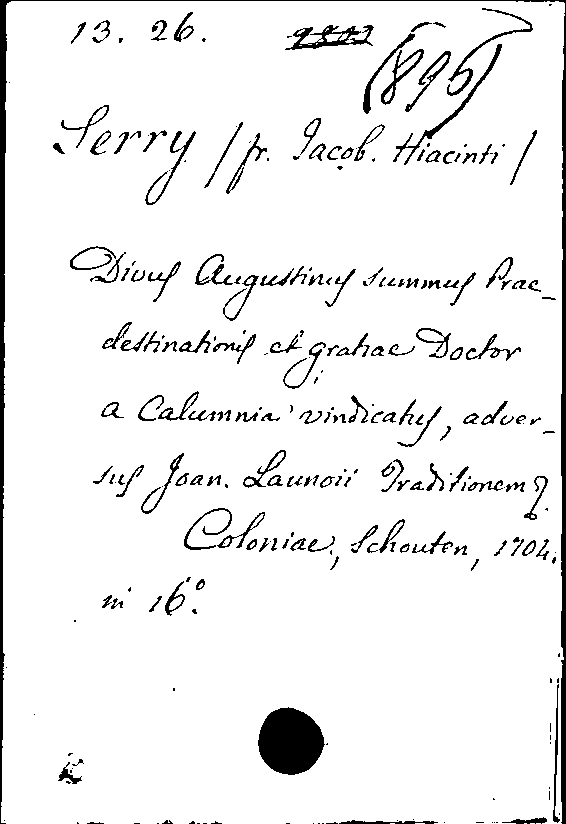 13. 26.
(896)
Serry /fr. Jacob. Hiacinti/
Divus Augustinus summus Prae-
destinationis et gratiae Doctor
a Calumnia vindicatus, adver-
sus Joan. Launoii Traditionem
Coloniae, Schouten, 1704.
in 16°.